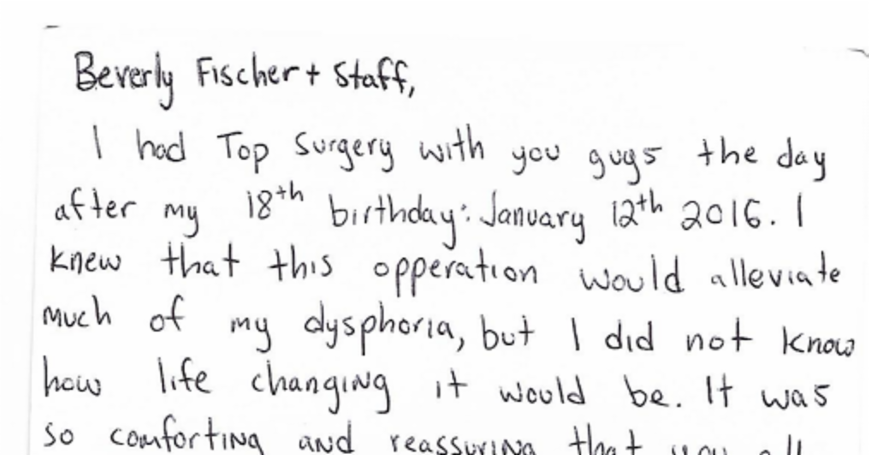 Beverly Fischer + Staff,
I had Top Surgery with you guys the day
after my 18th birthday: January 12th 2016. I
knew that this opperation would alleviate
much of my dysphoria, but I did not know
how life changing it would be. It was
so comforting and reassuring that you all